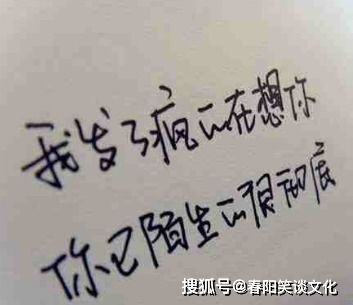 我发了疯的在想你
你已陌生的很彻底
搜狐号@春阳笑谈文化